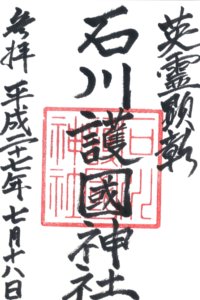 英霊顕彰
石川護國神社
参拝 平成二十七年七月十八日
石川護國神社